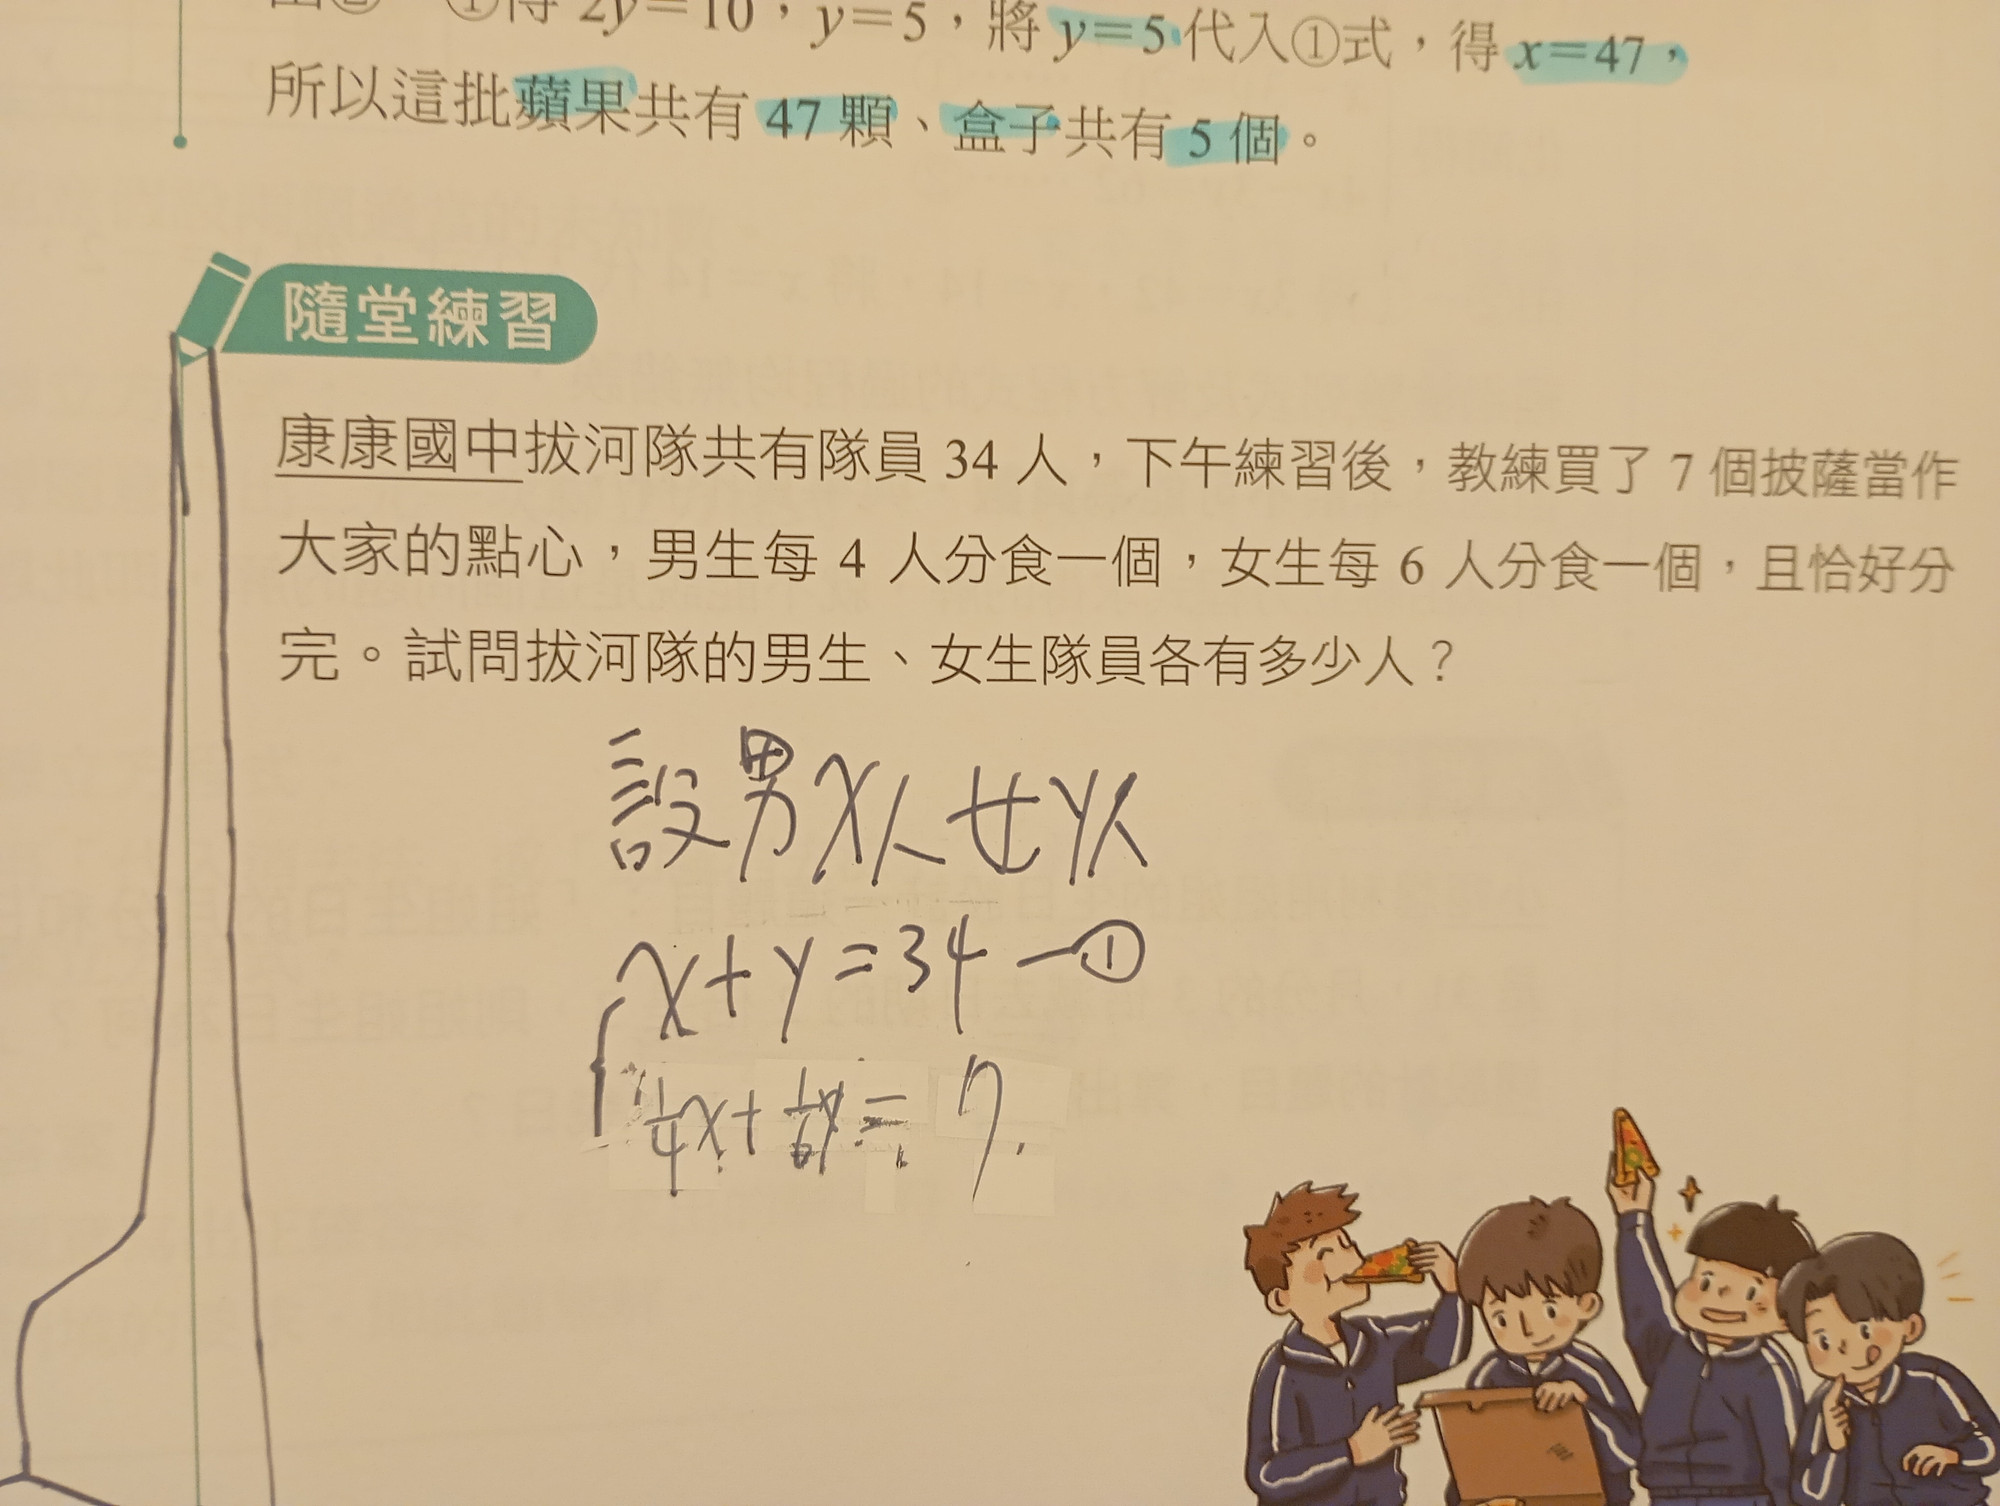 ①得 2y=10，y=5，將 y=5 代入①式，得 x=47，
所以這批蘋果共有 47 顆、盒子共有 5 個。
隨堂練習
康康國中拔河隊共有隊員 34 人，下午練習後，教練買了 7 個披薩當作
大家的點心，男生每 4 人分食一個，女生每 6 人分食一個，且恰好分
完。試問拔河隊的男生、女生隊員各有多少人？
設男x人女y人
x+y=34—①
1/4x+1/6y=7